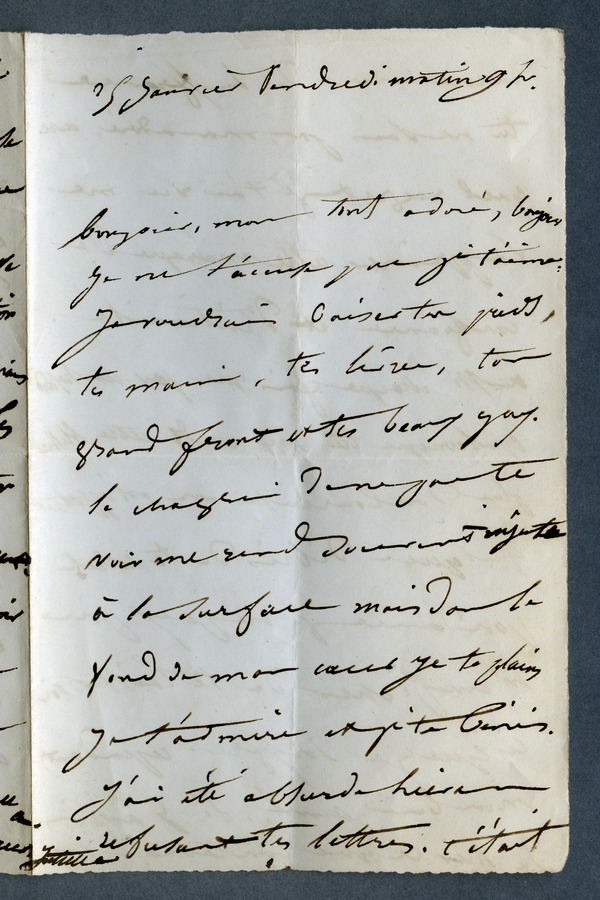 25 Janvier Vendredi matin 9 h.
bonjour, mon tout adoré, bonjour
je ne t'accuse pas je t'aime.
Je voudrais baiser tes pieds,
tes mains, tes lèvres, ton
grand front et tes beaux yeux.
le chagrin de ne pas te
voir me rend souvent injuste
à la surface mais dans le
fond de mon cœur je te plains
Je t'admire et je te bénis.
J'ai été absurde hier en
refusant tes lettres. c'était